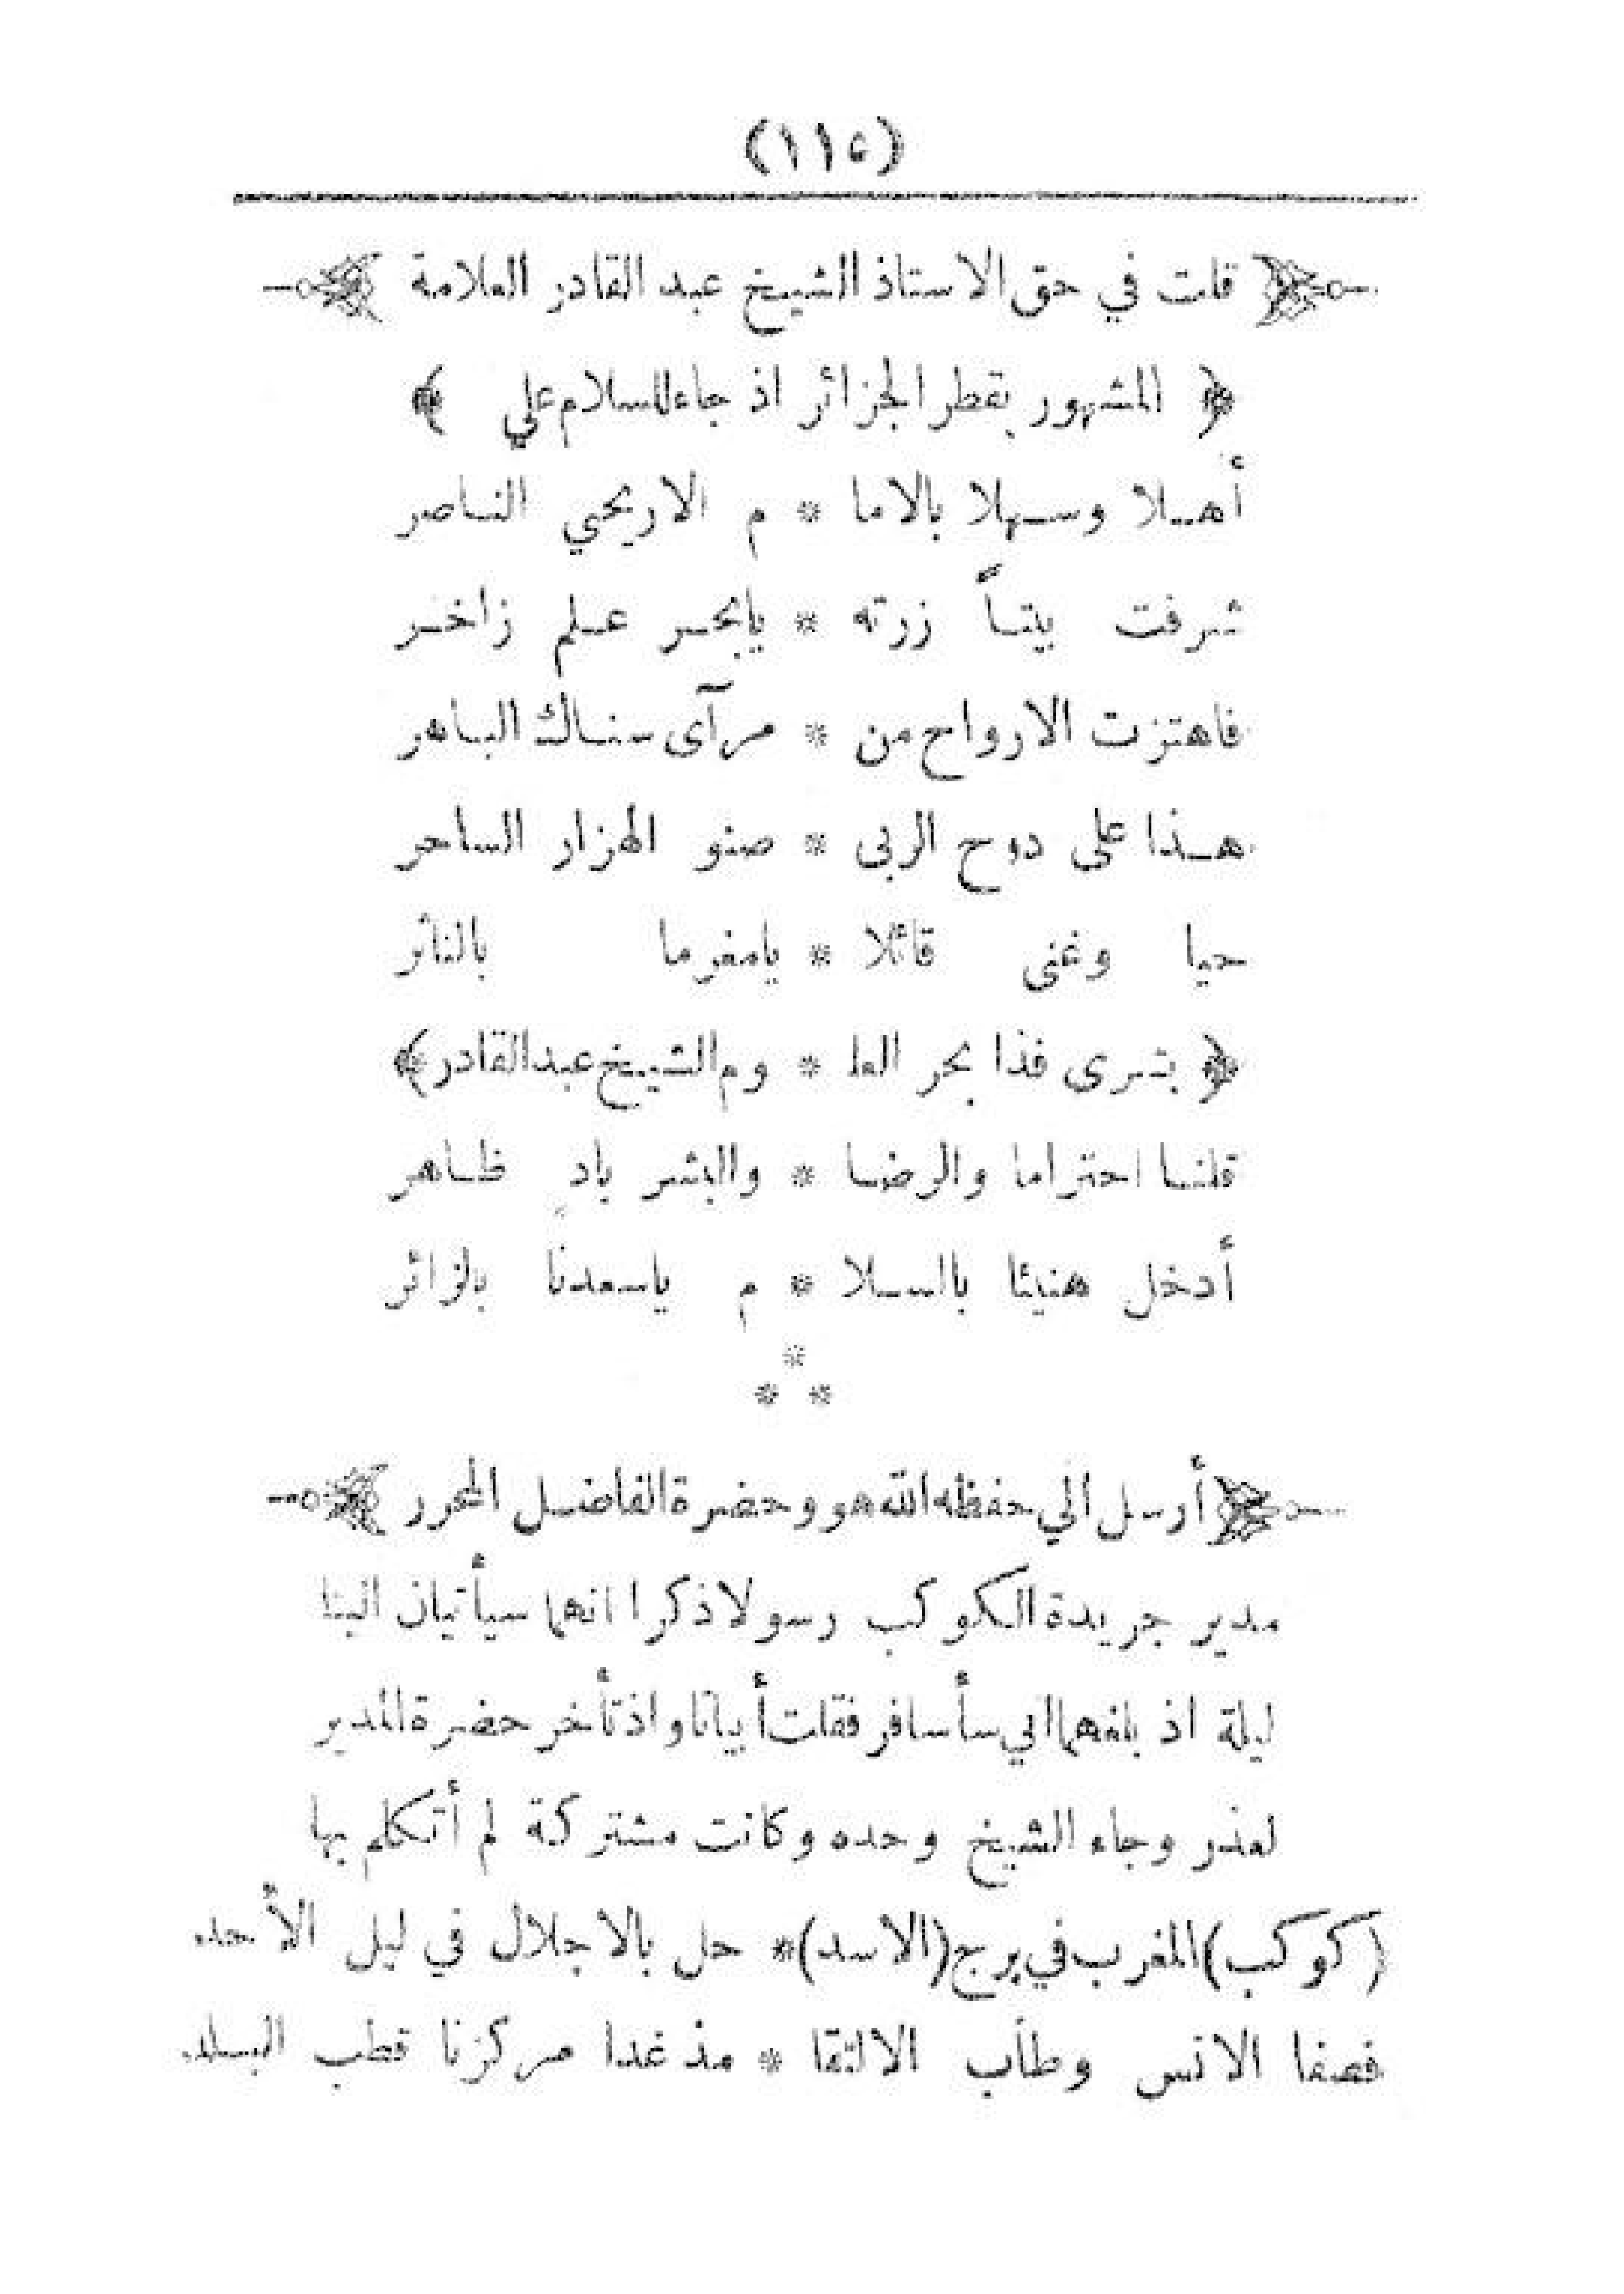 (١١٤)
قلت في حق الاستاذ الشيخ عبد القادر العلامة
﴿ المشهور بقطر الجزائر اذ جاء للسلام علي ﴾
أهلا وسهلا بالاما * م الاريحي الناصر
شرفت بيتاً زرته * يابحر علم زاخر
فاهتزت الارواح من * مرآى سناك الباهر
هذا على دوح الربى * صنو الهزار الساحر
حيا وغنى قائلا * يامغرما بالناثر
﴿ بشرى فذا بحر العلـ * وم الشيخ عبد القادر ﴾
قلنا احتراما والرضا * والبشر بادٍ ظاهر
أدخل هنيئا بالسلا * م ياسعدنا بالزائر
*
* *
أرسل الي حفظه الله هو وحضرة الفاضل المحرر
مدير جريدة الكوكب رسولا ذكرا انهما سيأتيان الينا
ليلة اذ بلغهما اني سأسافر فقلت أبياتا واذ تأخر حضرة المدير
لعذر وجاء الشيخ وحده وكانت مشتركة لم أتكلم بها
(كوكب) المغرب في برج (الاسد) * حل بالاجلال في ليل الأحد
فصفا الانس وطاب الالتقا * مذ غدا مركزنا قطب البلد